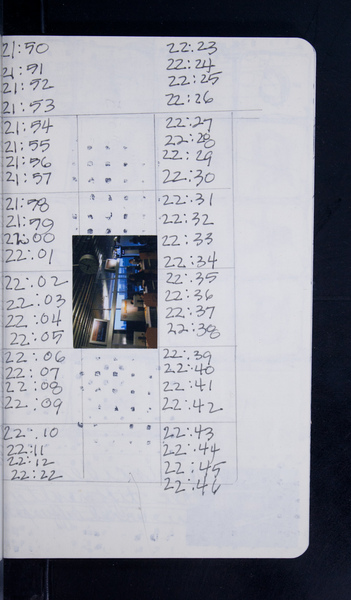 21:50
21:51
21:52
21:53
21:54
21:55
21:56
21:57
21:58
21:59
22:00
22:01
22:02
22:03
22:04
22:05
22:06
22:07
22:08
22:09
22:10
22:11
22:12
22:22
22:23
22:24
22:25
22:26
22:27
22:28
22:29
22:30
22:31
22:32
22:33
22:34
22:35
22:36
22:37
22:38
22:39
22:40
22:41
22:42
22:43
22:44
22:45
22:46